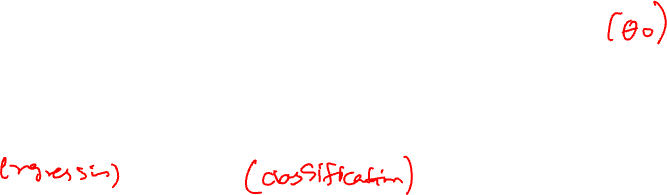 (θ0)
(regression) (classification)